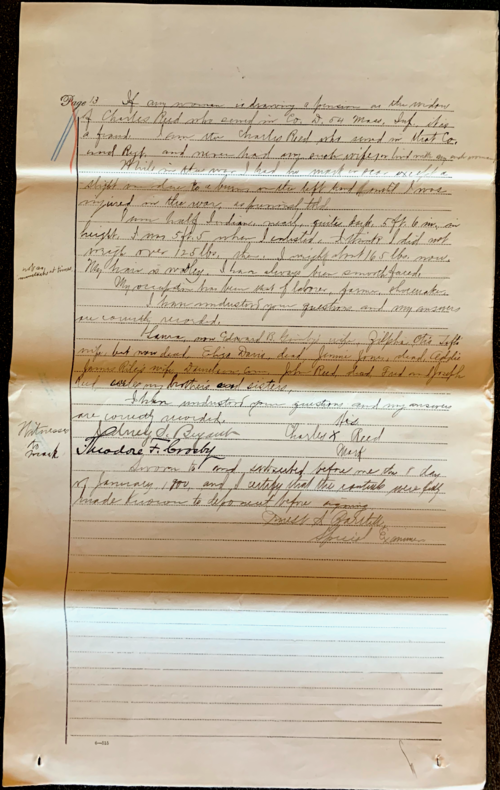 Page 13 If any woman is drawing a pension as the widow
of Charles Reed who served in Co. D, 54 Mass. Inf. she is
a fraud. I am the Charles Reed who served in that Co.
and Regt. and never had any such wife or lived with any such woman
While in the war I had no mark or scar except a
slight one due to a burn, on the left hand
injured in the war,
I am half Indian, nearly, quite dark, 5 ft. 6 in. in
height. I was 5 ft. 5 when I enlisted. I think I did not
weigh over 125 lbs. then. I weigh about 165 lbs now.
My hair is wooley. I have always been smooth faced.
My occupation has been that of laborer, farm,
I have understood your questions and my answers
are correctly recorded.
Laura, now Edward B. wife, Zilpha Otis
wife, but now dead, Dane, dead, Jones, dead,
James Riley's wife, Conn. John Reed dead and Joseph
Reed are my brothers and sisters.
I have understood your questions and my answers
are correctly recorded.
Witnesses
to
mark
Sidney
Theodore F. Crosby
His
Charles X Reed
Mark
Sworn to and subscribed before me this 8 day
of January, 1900, and I certify that the contents were fully
made known to deponent before signing
Special Examiner